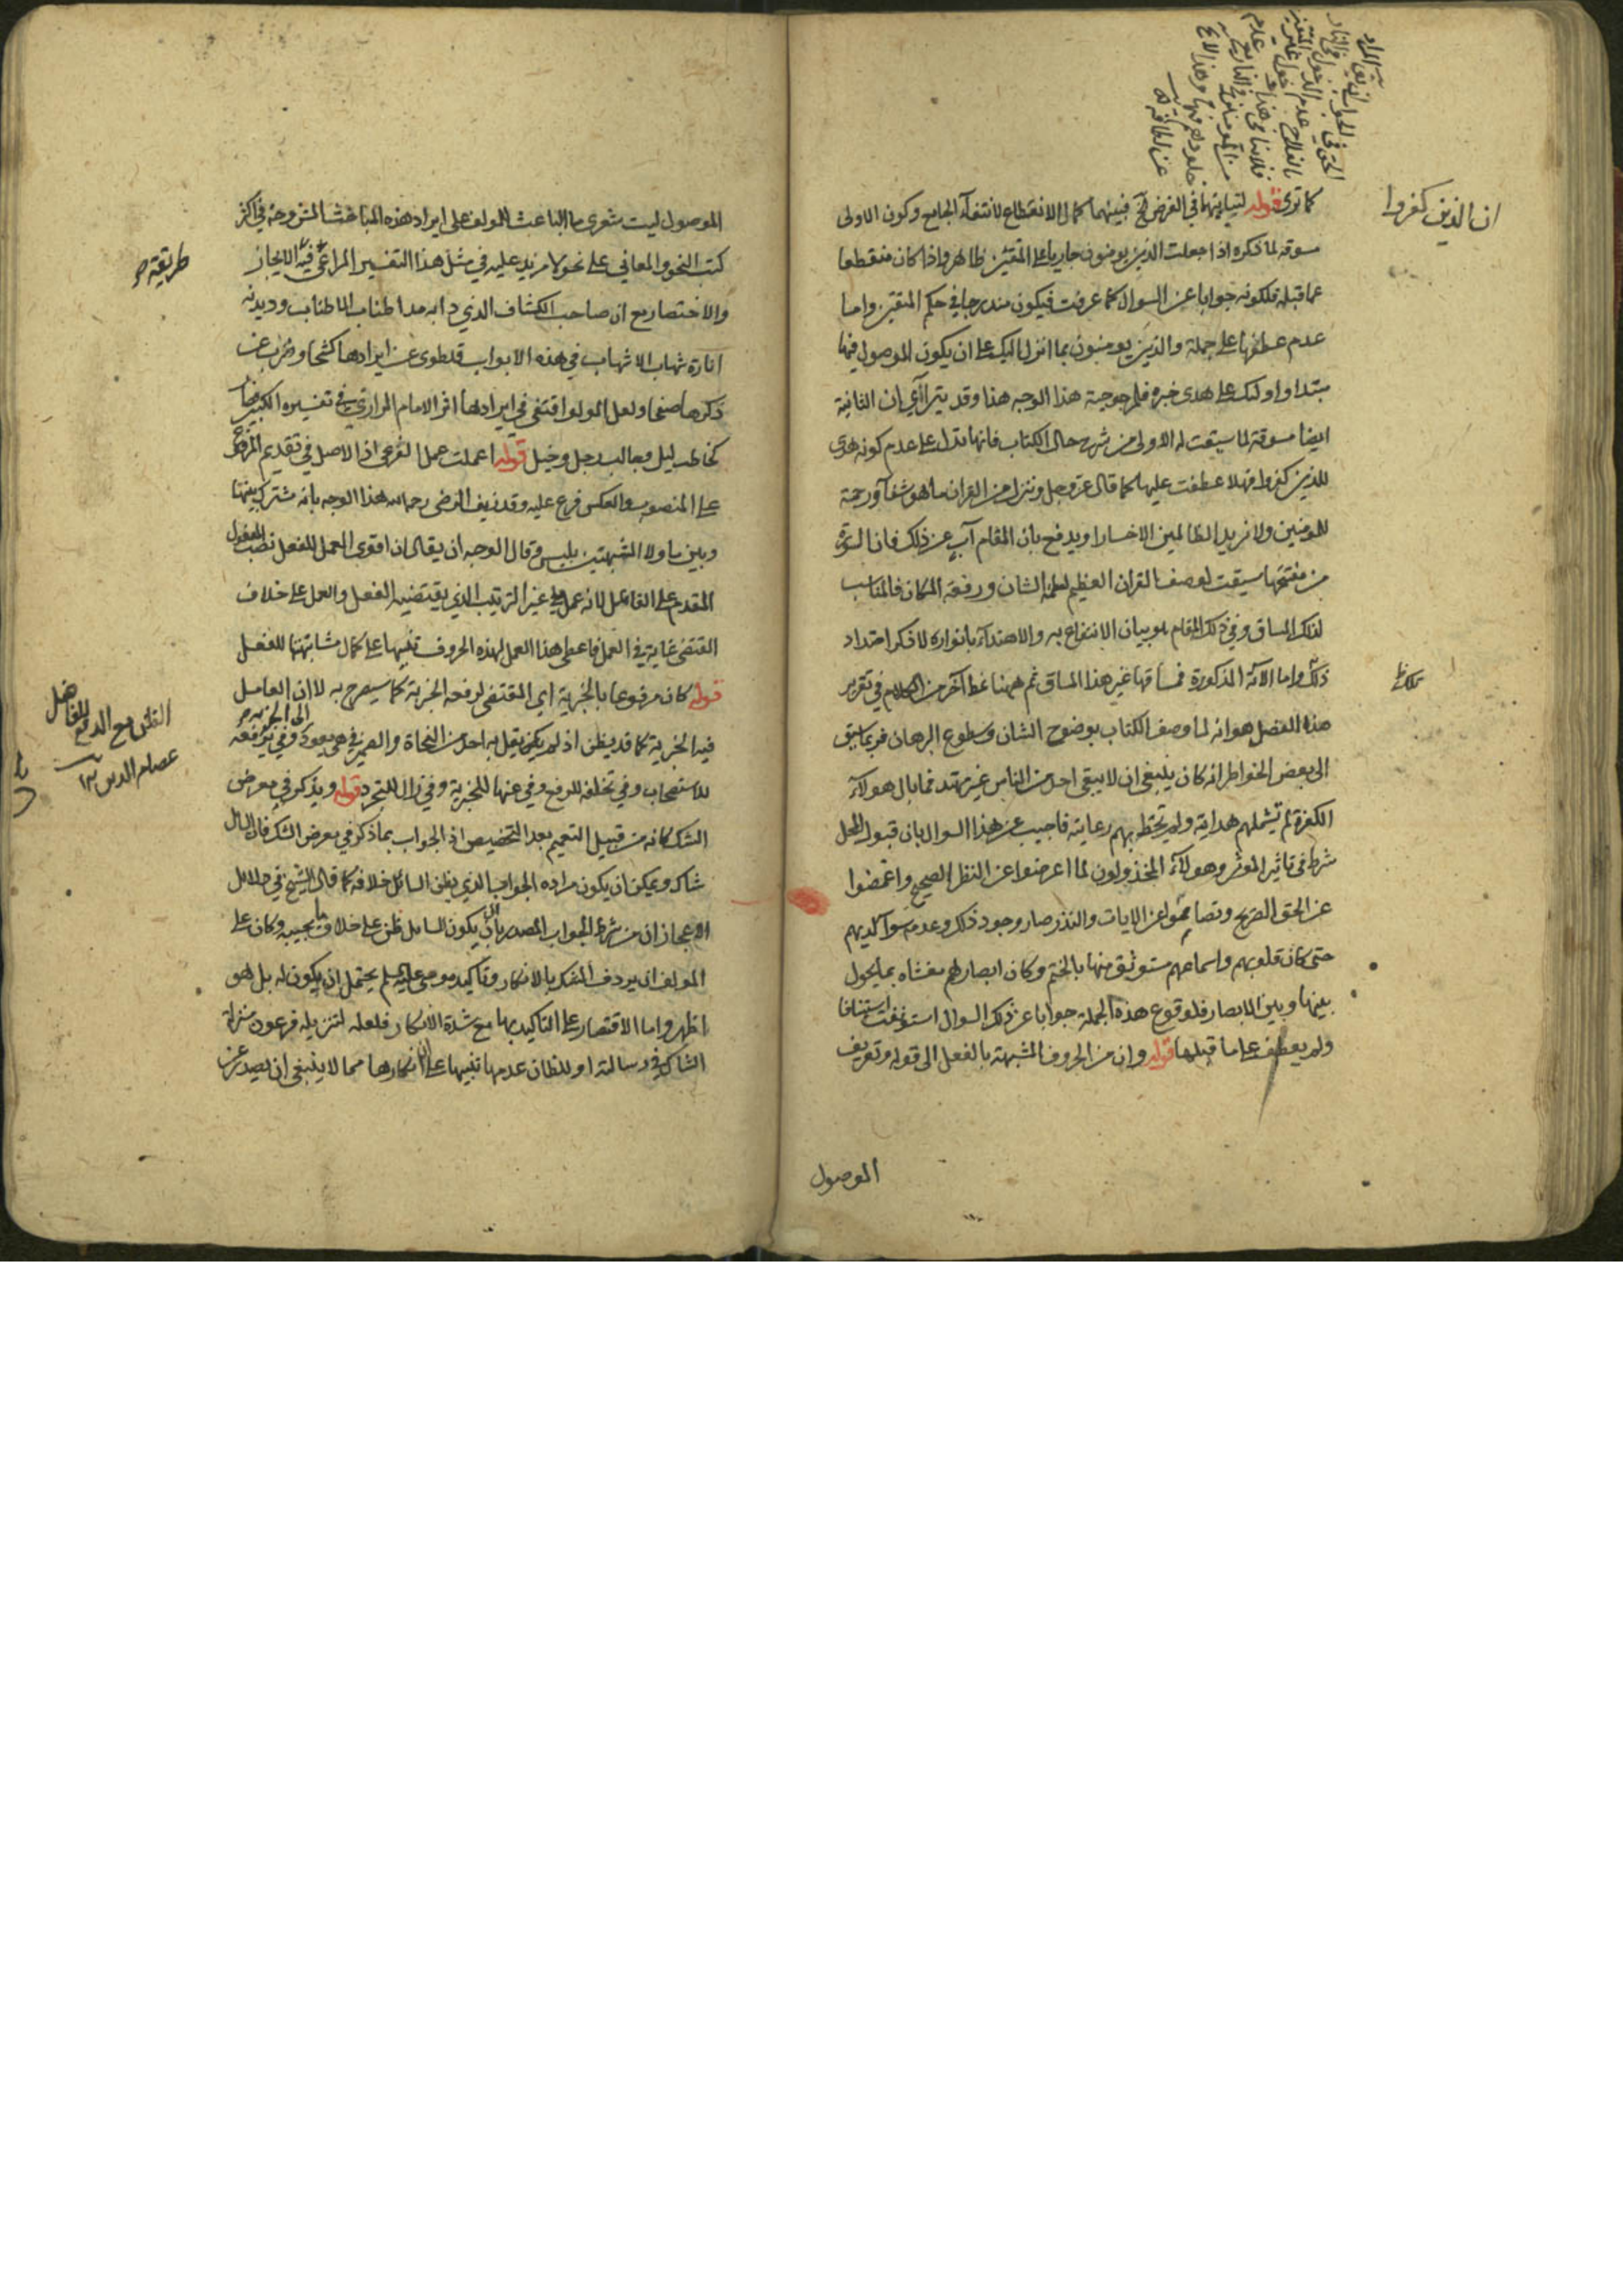 ان الذين كفروا
كما ترى قوله لتباينهما في الغرض الخ فبينهما كمال الانقطاع لانتفاء الجامع وكون الاولى
مسوقة لما ذكره اذا جعلت الذين يومنون جاريا على المتقين ظاهر واذا كان منقطعا
عما قبله فلكونه جوابا عن السوال كما عرفت فيكون مندرجا في حكم المتقين واما
عدم عطفها على جملة والذين يومنون بما انزل اليك على ان يكون الموصول فيها
مبتدا واولئك على هدى خبره فلمرجوحية هذا الوجه هذا وقد يتراأى ان الثانية
ايضا مسوقة لما سيقت له الاولى من شرح حال الكتاب فانها تدل على عدم كونه هدى
للذين كفروا فهلا عطفت عليها كما قال عز وجل وننزل من القران ما هو شفاء ورحمة
للمومنين ولا نزيد الظالمين الا خسارا ويدفع بان المقام آب عن ذلك فان السورة
من مفتتحها سيقت لوصف القران العظيم الشان ورفعة المكان فالمناسب
لذلك المساق وفي ذلك المقام هو بيان الانتفاع به والاهتداء بانواره لا ذكر امتداد
ذلك واما الآية المذكورة فمساقها غير هذا المساق ثم ههنا نمط آخر من الكلام في تقرير
هذا الفصل هو انه لما وصف الكتاب بوضوح الشان وسطوع البرهان فربما سبق
الى بعض الخواطر انه كان ينبغي ان لا يبقى احد من الناس غير مهتد فما بال هولاء
الكفرة لم تشملهم هدايته ولم تحط بهم رعايته فاجيب عن هذا السوال بان قبول المحل
شرط في تاثير الموثر وهولاء المخذولون لما اعرضوا عن النظر الصحيح واغمضوا
عن الحق الصريح وتصامموا عن الايات والنذر صار وجود ذلك وعدمه سواء لديهم
حتى كان قلوبهم واسماعهم مستوثق منها بالختم وكان ابصارهم مغشاه بما يحول
بينها وبين الابصار فلوقوع هذه الجملة جوابا عن ذلك السوال استونفت استينافا
ولم يعطف على ما قبلها قوله وان من الحروف المشبهة بالفعل الى قوله وتعريف
الموصول
الموصول ليت شعري ما الباعث للمولف على ايراد هذه المباحث المشروحة في اكثر
كتب النحو والمعاني على نحو لا مزيد عليه في مثل هذا التفسير المراعى فيه الايجاز
طريقة
والاختصار مع ان صاحب الكشاف الذي دابه مد اطناب الاطناب وديدنه
انارة شهاب الاشهاب في هذه الابواب قد طوى عن ايرادها كشحا وضرب عن
ذكرها صفحا ولعل المولف اقتفى في ايرادها اثر الامام الرازي في تفسيره الكبير
كحاطب ليل وجالب رجل وخيل قوله اعملت عمل الفرعي اذ الاصل في تقديم المرفوع
على المنصوب والعكس فرع عليه وقد زيف الرضى رحمه الله هذا الوجه بانه مشترك بينها
وبين ما ولا المشبهتين بليس وقال الوجه ان يقال ان اقوى العمل للفعل نصب المفعول
المقدم على الفاعل لانه عمل على غير الترتيب الذي يقتضيه الفعل والعمل على خلاف
المقتضى غاية في العمل فاعطى هذا العمل لهذه الحروف تنبيها على كمال مشابهتها للفعل
قوله كان مرفوعا بالخبرية اي المقتضى لرفعه الخبرية كما سيصرح به لا ان العامل
فيه الخبرية كما قد يظن اذ لم يكن يقل به احد من النحاة والضمير في هي يعود الى الخبرية وفي ترفعه
الفاضل
عصام الدين ١٢
للاستصحاب وفي تخلفه للرفع وفي عنها للخبرية وفي زال للتجرد قوله ويذكر في معرض
الشك كانه من قبيل التعميم بعد التخصيص اذ الجواب بما ذكر في معرض الشك فان السائل
شاك ويمكن ان يكون مراده الجواب الذي يظن السائل خلافه كما قال الشيخ في دلائل
الاعجاز ان من شرط الجواب المصدر بان ان يكون السائل ظن على خلاف ما يجيبه وكان على
المولف ان يردف الشك بالانكار وتاكيد موسى عليه السلم يحتمل ان يكون له بل هو
اظهر واما الاقتصار على التاكيد بها مع شدة الانكار فلعله لتنزيله فرعون منزلة
الشاك في رسالته او للظان عدمها تنبيها على ان انكارها مما لا ينبغي ان يصدر عن